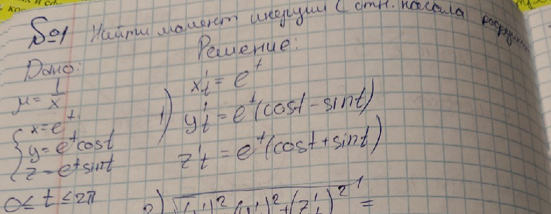 №1 Найти момент инерции (отн. начала
Решение:
Дано:
μ = 1/x
{ x = e^t
y = e^t cost
z = e^t sint
0 ≤ t ≤ 2π
1) x't = e^t
y't = e^t(cost - sint)
z't = e^t(cost + sint)